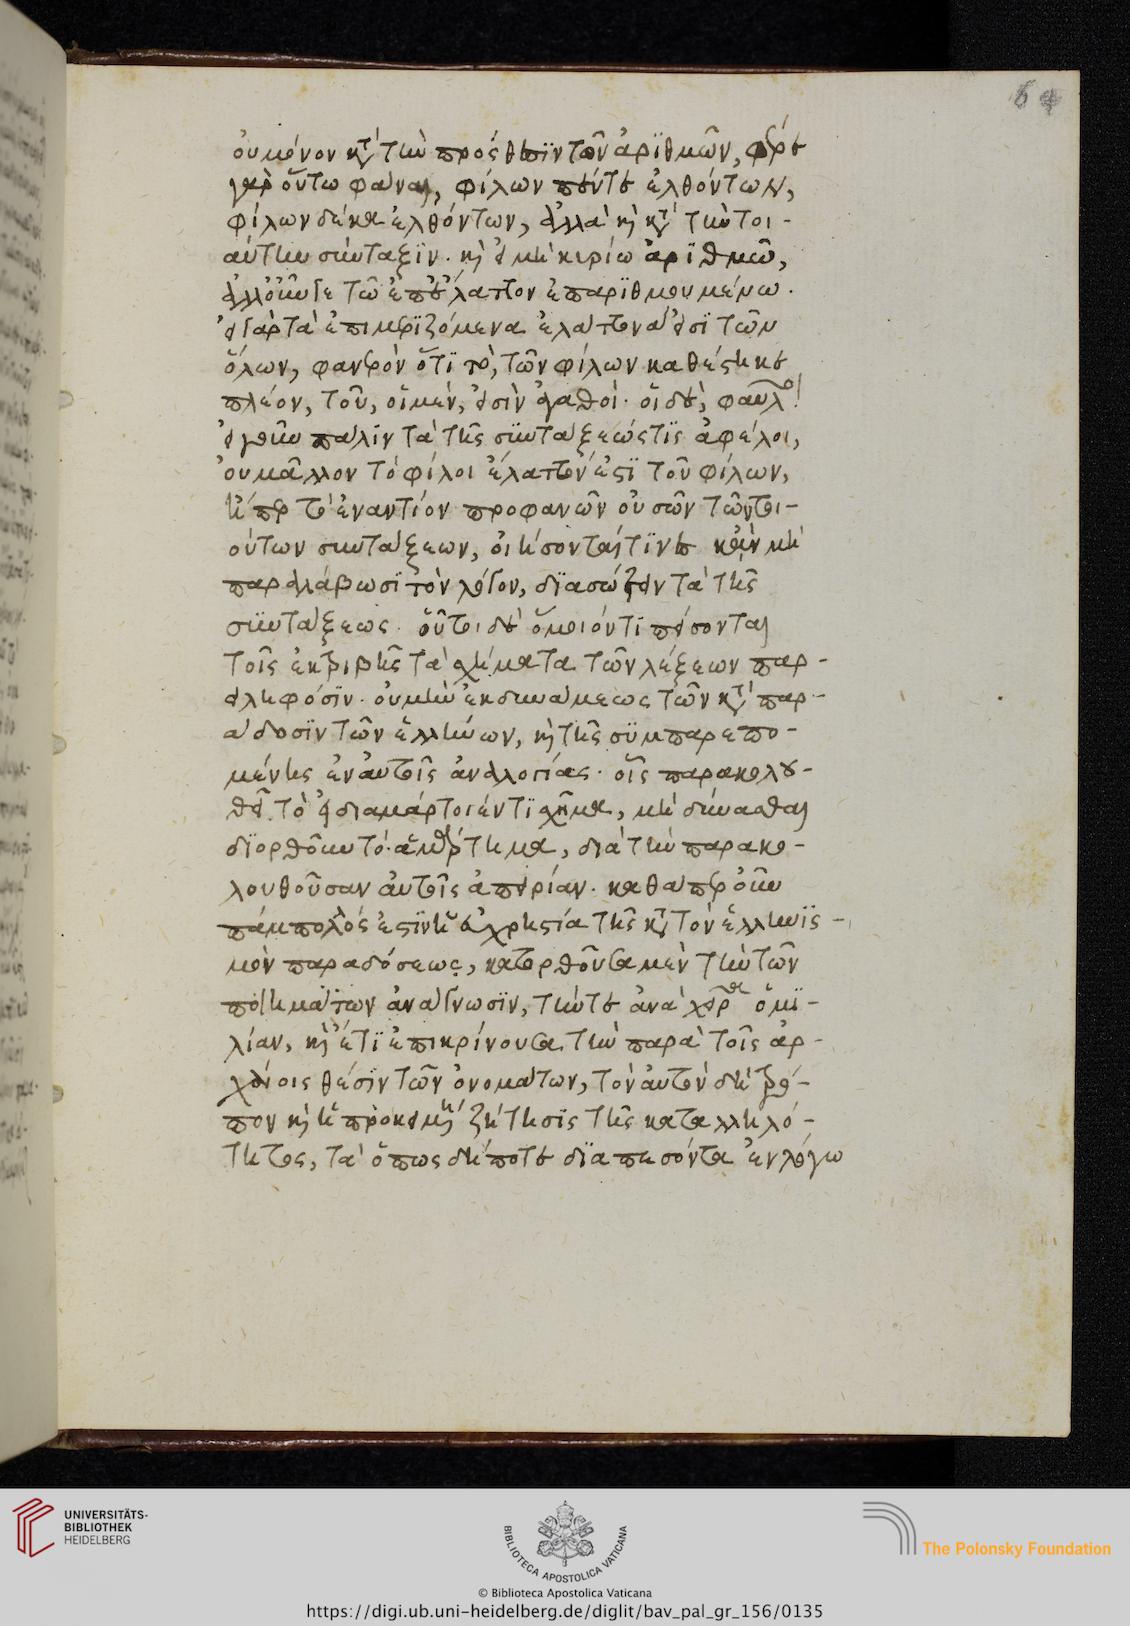 64
οὐ μόνον κατὰ τὴν πρόσθεσιν τῶν ἀρϊθμῶν, φέρε
γὰρ οὕτω φάναι, φίλων πέντε ἐλθόντων,
φίλων δέκα ἐλθόντων, ἀλλὰ καὶ κατὰ τὴν τοι-
αύτην σύνταξϊν. καὶ εἰ μὴ κυρίω ἀρϊθμῶ,
ἀλλ' οὖν γε τῶ ἐπ' ἔλαττον ἐπαρϊθμουμένω.
εἰ γὰρ τὰ ἐπιμερϊζόμενα ἐλάττονα εἰσὶ τῶν
ὅλων, φανερὸν ὅτϊ τὸ, τῶν φίλων καθέστηκε
πλέον, τοῦ, οἱ μὲν, εἰσὶν ἀγαθοὶ. οἱ δὲ, φαῦλοι
εἰ γοῦν παλϊν τὰ τῆς σϋντάξεώς τϊς ἀφέλοι,
οὐ μᾶλλον τὸ φίλοι ἔλαττόν ἐστϊ τοῦ φίλων,
ἤπερ τὸ ἐναντίον προφανῶν οὐσῶν τῶν τοι-
ούτων συντάξεων, οἰήσονταί τϊνες κἂν μὴ
παραλάβωσϊ τὸν λόγον, δϊασώζειν τὰ τῆς
σϋντάξεως. οὗτοι δὲ ὅμοιόν τϊ πείσονται
τοῖς ἐκ τριβῆς τὰ σχήματα τῶν λέξεων παρ-
ειληφόσϊν. οὐ μὴν ἐκ δυνάμεως τῶν κατὰ παρ-
άδοσϊν τῶν ἑλλήνων, καὶ τῆς σϋμπαρεπο-
μένης ἐν αὐτοῖς ἀναλογίας. οἷς παρακολου-
θεῖ τὸ εἰ διαμάρτοιέν τϊ σχῆμα, μὴ δύνασθαι
δϊορθοῦν τὸ ἁμάρτημα, διὰ τὴν παρακο-
λουθοῦσαν αὐτοῖς ἀπειρίαν. καθάπερ οὖν
πάμπολός ἐστϊν ἡ εὐχρηστία τῆς κατὰ τὸν ἑλληνϊς-
μὸν παραδόσεως, κατορθοῦσα μὲν τὴν τῶν
ποιημάτων ἀνάγνωσϊν, τήν τε ἀνὰ χεῖρα ὁμϊ-
λίαν, καὶ ἔτϊ ἐπικρίνουσα τὴν παρὰ τοῖς ἀρ-
χαίοις θέσϊν τῶν ὀνομάτων, τὸν αὐτὸν δὴ τρό-
πον καὶ ἡ προκειμένη ζήτησϊς τῆς καταλληλό-
τητος, τὰ ὅπως δήποτε δϊαπεσόντα ἐν λόγω
UNIVERSITÄTS-
BIBLIOTHEK
HEIDELBERG
BIBLIOTECA APOSTOLICA VATICANA
The Polonsky Foundation
© Biblioteca Apostolica Vaticana
https://digi.ub.uni-heidelberg.de/diglit/bav_pal_gr_156/0135